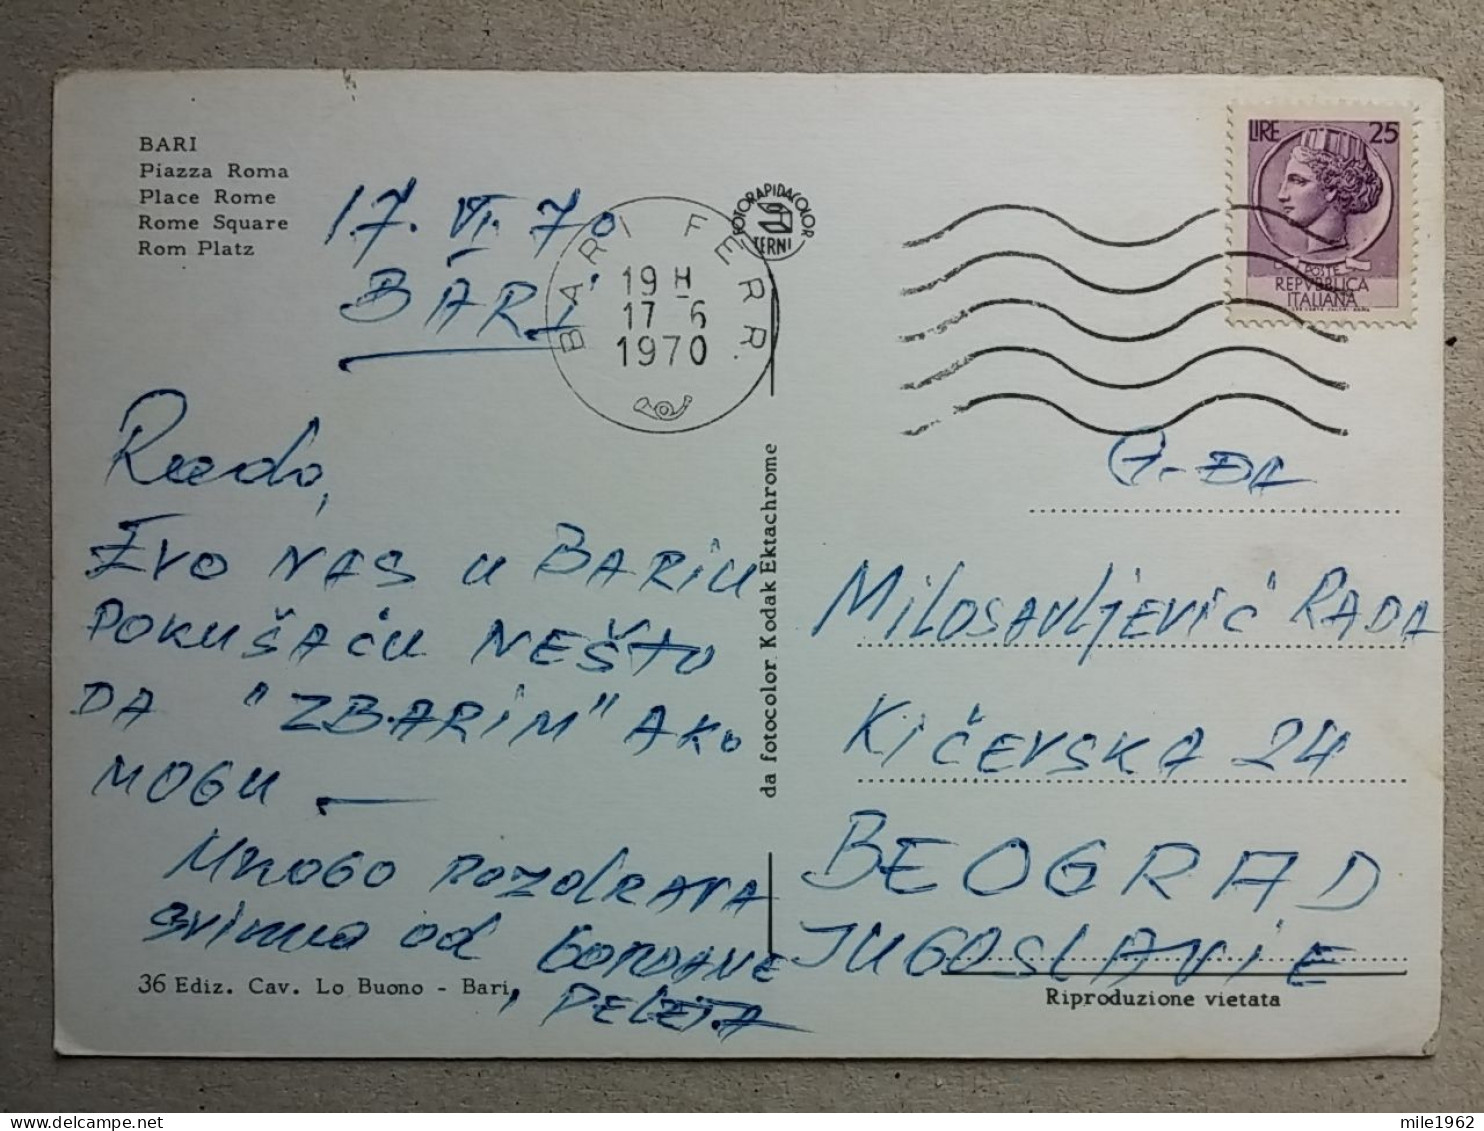 BARI
Piazza Roma
Place Rome
Rome Square
Rom Platz
17. VI. 70
BARI
BARI FERR.
19 H
17-6
1970
FOTORAPIDACOLOR
TERNI
LIRE 25
POSTE
REPVBBLICA
ITALIANA
Rado,
EVO NAS U BARIU
POKUŠAĆU NEŠTO
DA "ZBARIM" AKO
MOGU —
MNOGO POZDRAVA
SVIMA OD GORDANE
, PELETA
36 Ediz. Cav. Lo Buono - Bari
da fotocolor Kodak Ektachrome
G-ĐA
MILOSAVLJEVIĆ RADA
KIČEVSKA 24
BEOGRAD
JUGOSLAVIE
Riproduzione vietata
mile1962